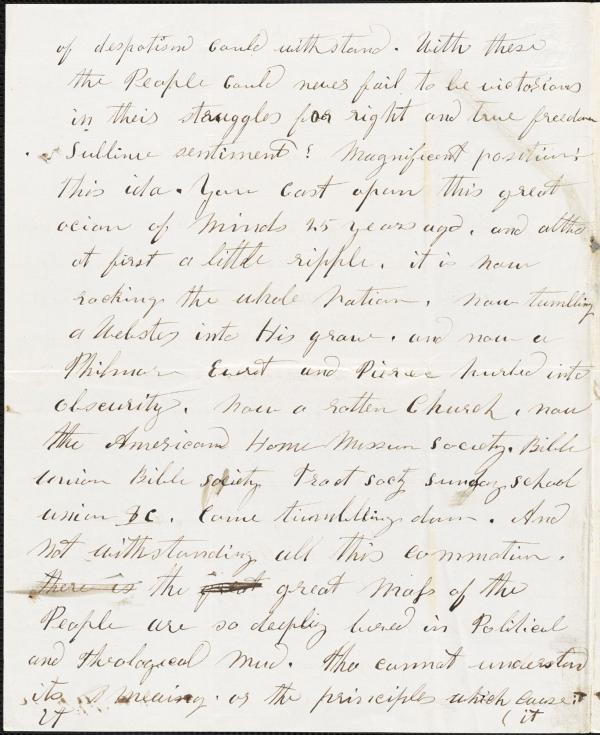 of despotism could withstand. With these
the People could never fail to be victorious
in theis struggles for right and true freedom
Sublime sentiment! Magnificent position!
this ida. You Cast upon this great
ocian of Minds 25 years ago. and altho
at first a little ripple. it is now
rocking the whole Nation. now tumbling
a Webster into His grave. and now a
Philmore Everet and Pierce hurled into
obscurity. now a rotten Church. now
the American Home Mission Society. Bible
union Bible society Tract socty sunday school
union &c. Come tumblling down. And
not withstanding all this commotion.
there is the great great Mass of the
People are so deepliy buried in Political
and Theological Mud. tha cannot understan
its meaning. or the principles which cause it
it (it